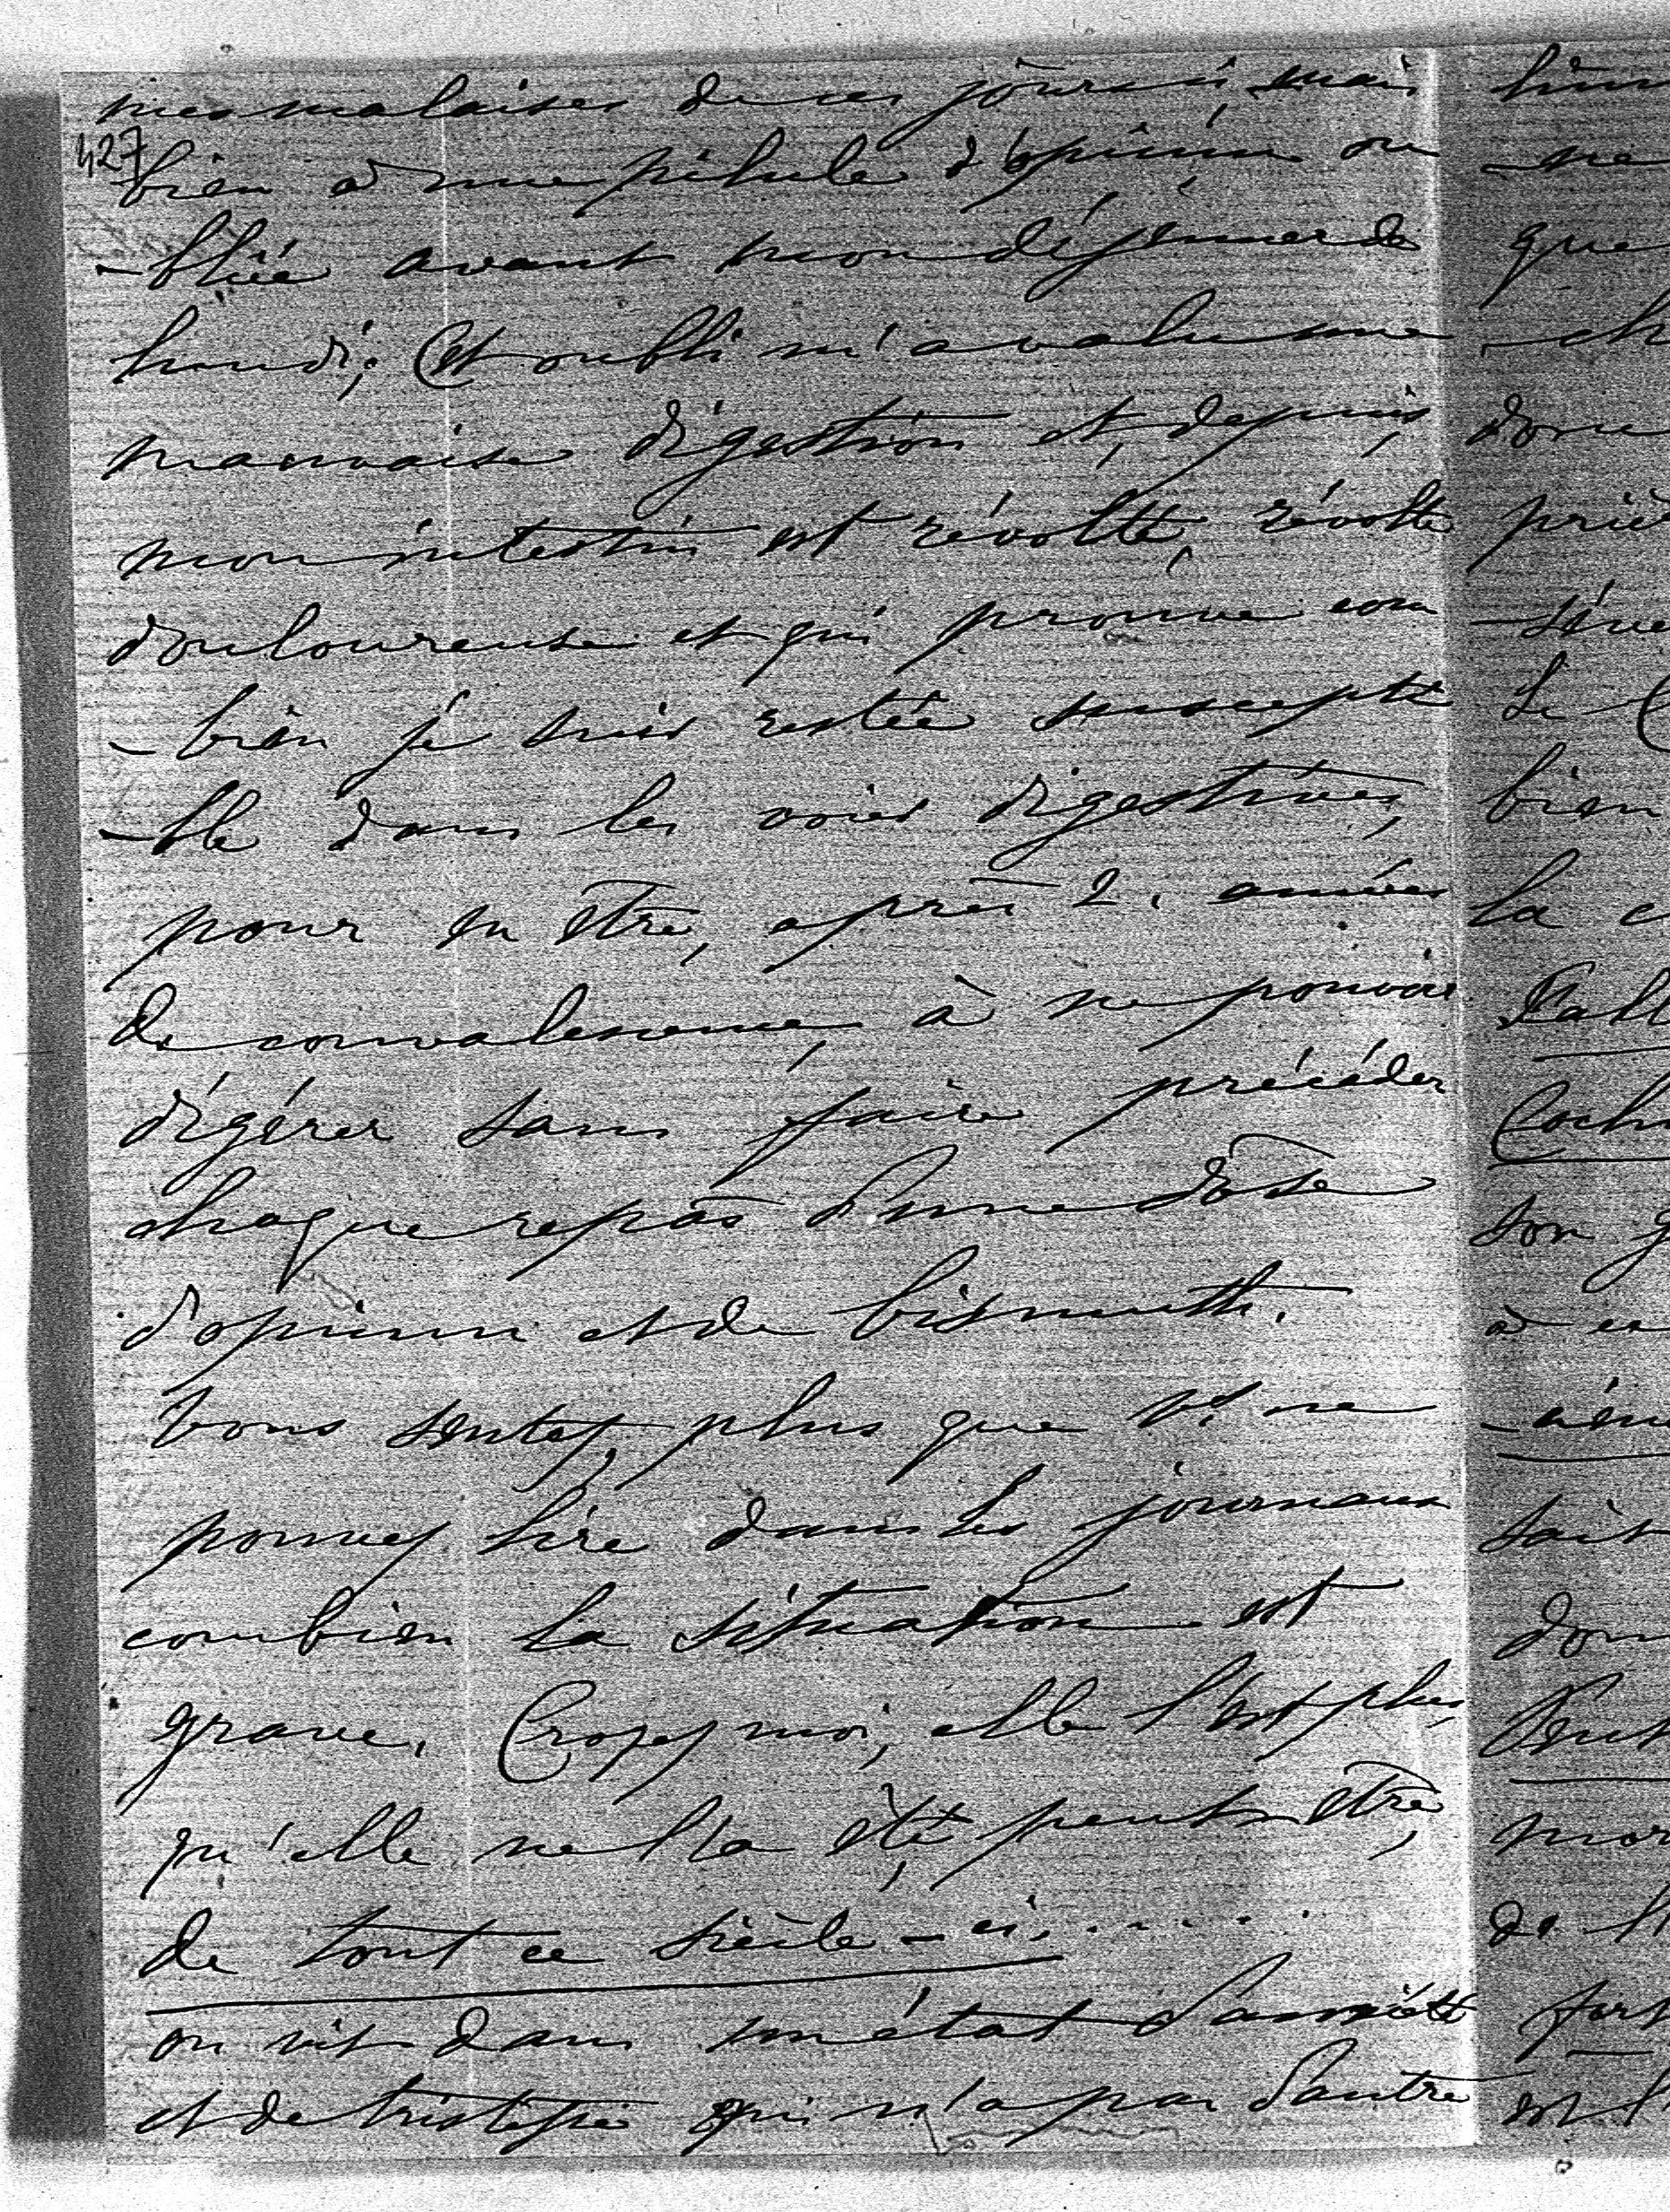 mes malaises de ces jours ci, mais
427
bien à une pilule d'opium ou
-bliée avant mon déjeuner de
lundi; Cet oubli m'a valu une
mauvaise digestion et, depuis,
mon intestin est révolté, révolte
douloureuse et qui prouve com
-bien je suis restée suscepti
-ble dans les voies digestives,
pour en être, après 2. années
de convalescence, à ne pouvoir
digérer sans faire précéder
chaque repas d'une dose
d'opium et de bismuth.
Vous sentez, plus que vs ne
pouvez lire dans les journaux
combien la situation est
grave. Croyez moi, elle l'est plus,
qu'elle ne l'a été, peut être,
de tout ce siècle-ci. . . . . .
on vit dans un état d'anxiété
et de tristesse qui n'a pas d'autre
que
donc
bien
la c
son g
fort